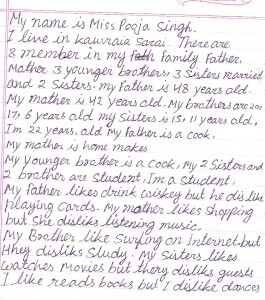 My name is Miss Pooja Singh.
I live in kawraia Sarai. There are
8 member in my Family Father,
Mother 3 younger brothers, 3 Sisters married
and 2 Sisters. my Father is 48 years old.
My mother is 42 years old. My brothers are 20,
17, 6 years old my Sisters is 15, 11 years old,
Im 22 years. old My Father is a cook.
My mother is home makes
My younger Brother is a cook, My 2 Sisters and
2 brother are Student. Im a Student,
My Father likes drink wiskey but he dislike
Playing cards. My mother likes shopping
but She disliks listening music.
My Brother like Surfing on Internet but
they disliks Study. My Sisters likes
watches Movies but thery disliks guests
I like reads books but I dislike dances